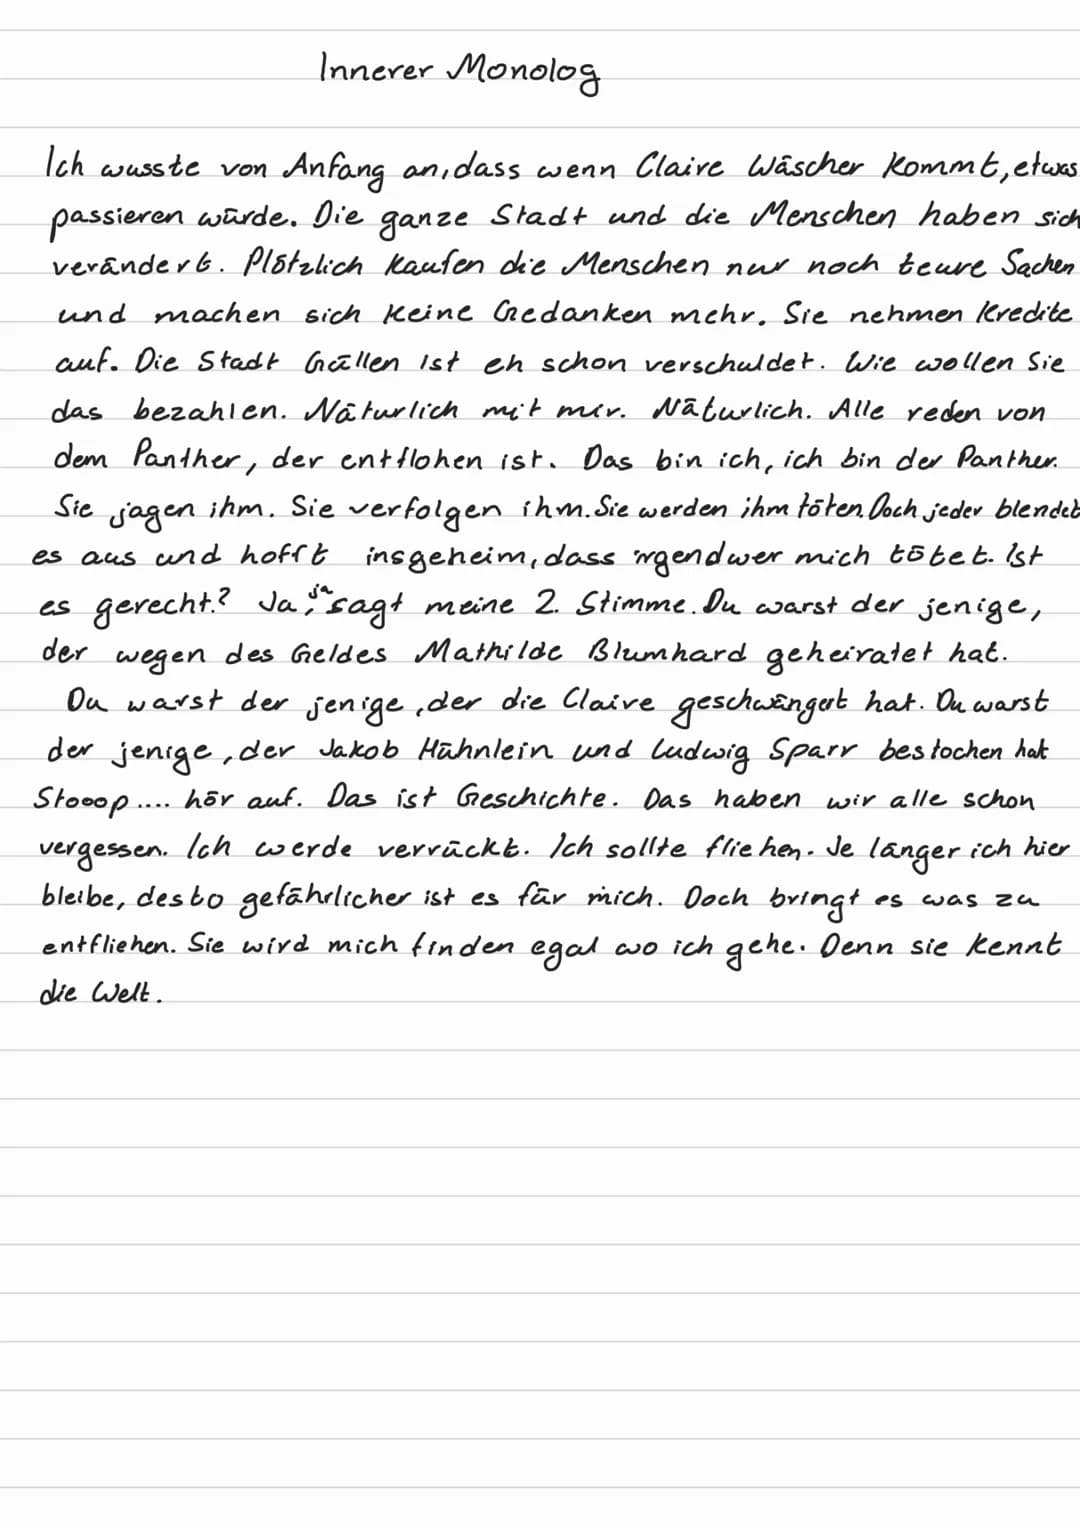 Innerer Monolog
Ich wusste von Anfang an, dass wenn Claire Wäscher kommt, etwas
passieren würde. Die ganze Stadt und die Menschen haben sich
verändert. Plötzlich kaufen die Menschen nur noch teure Sachen
und machen sich keine Gedanken mehr. Sie nehmen Kredite
auf. Die Stadt Gällen ist eh schon verschuldet. Wie wollen Sie
das bezahlen. Näturlich mit mir. Näturlich. Alle reden von
dem Panther, der entflohen ist. Das bin ich, ich bin der Panther.
Sie jagen ihm. Sie verfolgen ihm. Sie werden ihm töten. Doch jeder blendet
es aus und hofft insgeheim, dass irgendwer mich tötet. Ist
es gerecht.? Ja, "ja" sagt meine 2. Stimme. Du warst der jenige,
der wegen des Geldes Mathilde Blumhard geheiratet hat.
Du warst der jenige, der die Claire geschwängert hat. Du warst
der jenige, der Jakob Hühnlein und Ludwig Sparr bestochen hat
Stooop.... hör auf. Das ist Geschichte. Das haben wir alle schon
vergessen. Ich werde verrückt. Ich sollte fliehen. Je länger ich hier
bleibe, desto gefährlicher ist es für mich. Doch bringt es was zu
entfliehen. Sie wird mich finden egal wo ich gehe. Denn sie kennt
die Welt.